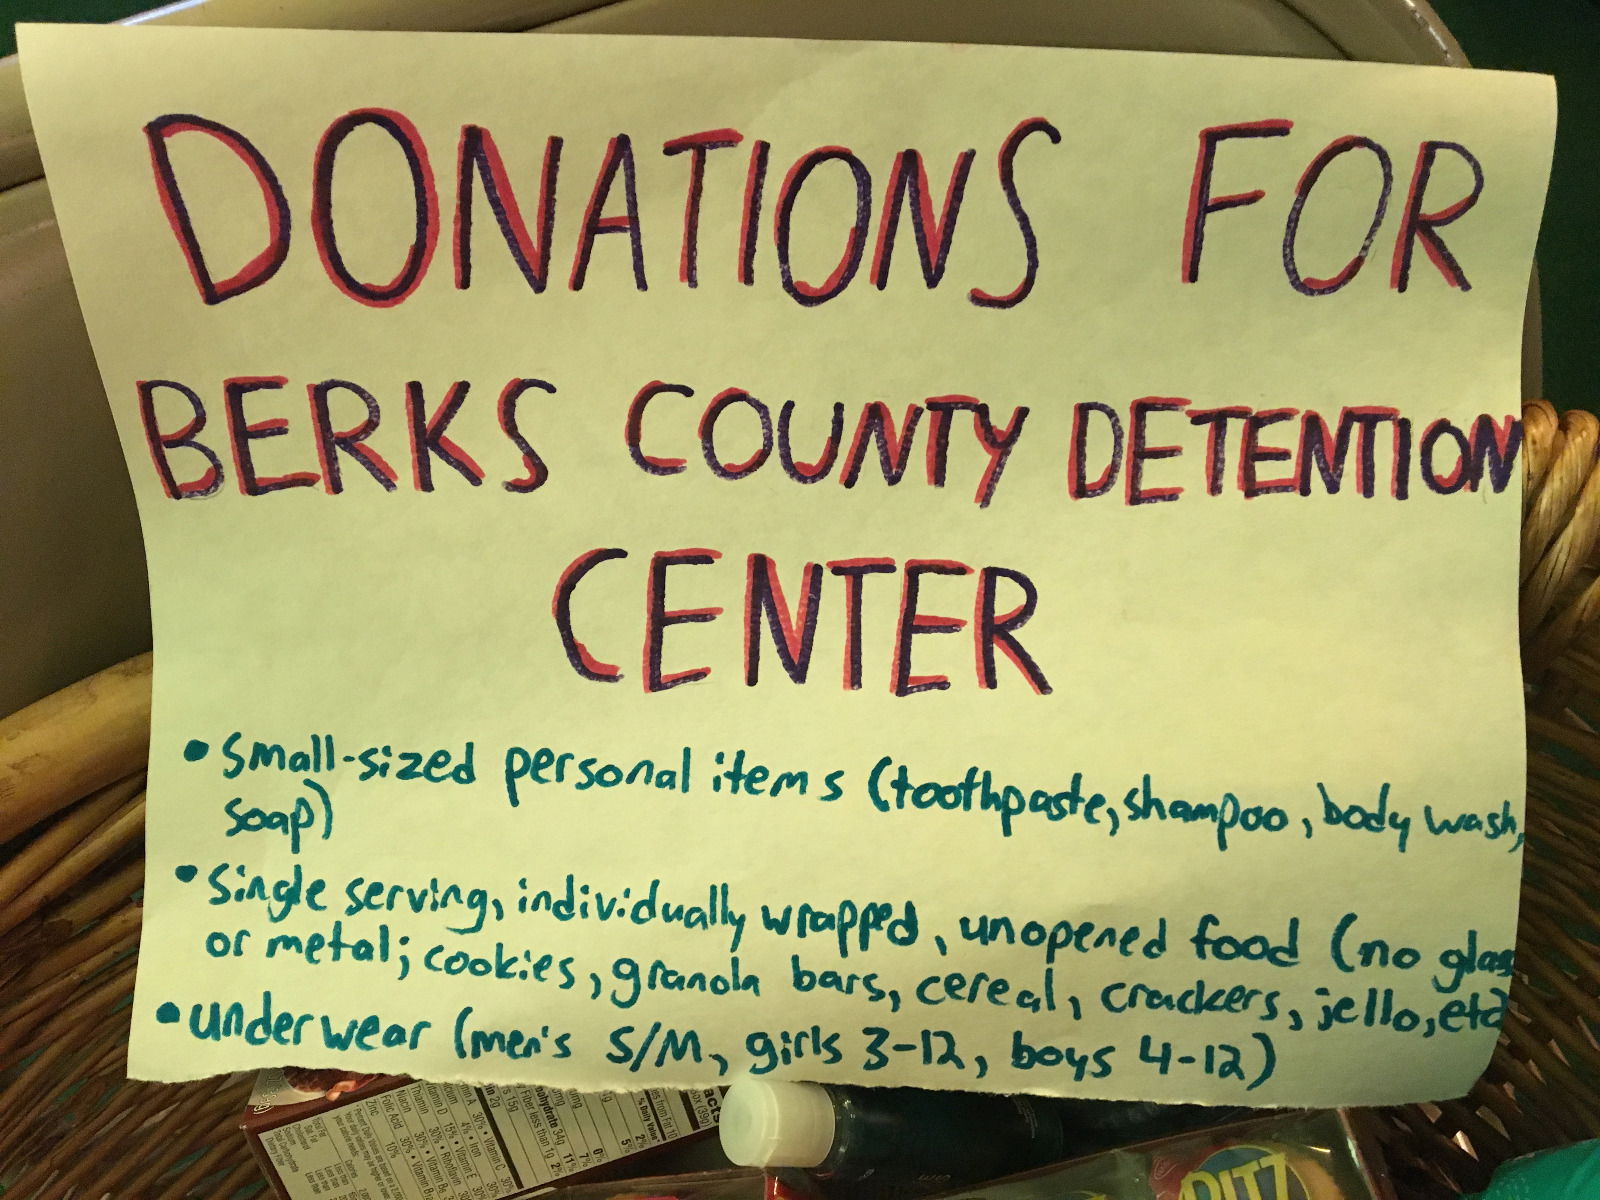 DONATIONS FOR
BERKS COUNTY DETENTION
CENTER
• Small-sized personal items (toothpaste, shampoo, body wash,
soap)
• Single serving, individually wrapped, unopened food (no glass
or metal; cookies, granola bars, cereal, crackers, jello, etc)
• underwear (men's S/M, girls 3-12, boys 4-12)
RITZ